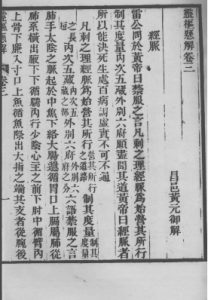 靈樞懸解卷二
昌邑黃元御解
經脈
雷公問於黃帝曰禁服之言凡刺之理經脈為始營其所行
制其度量內次五藏外別六府願盡聞其道黃帝曰經脈者
所以能決死生處百病調虛實不可不通
凡刺之理經脈為始營其所行營其所行之道路制其度量制其度量
之長內次五藏內次五藏之外別六府外別六府之分語禁服之言
肺手太陰之脈起於中焦下絡大腸還循胃口上膈屬肺從
肺系橫出腋下下循臑內行少陰心主之前下肘中循臂內
上骨下廉入寸口上魚循魚際出大指之端其支者從腕後
靈樞懸解